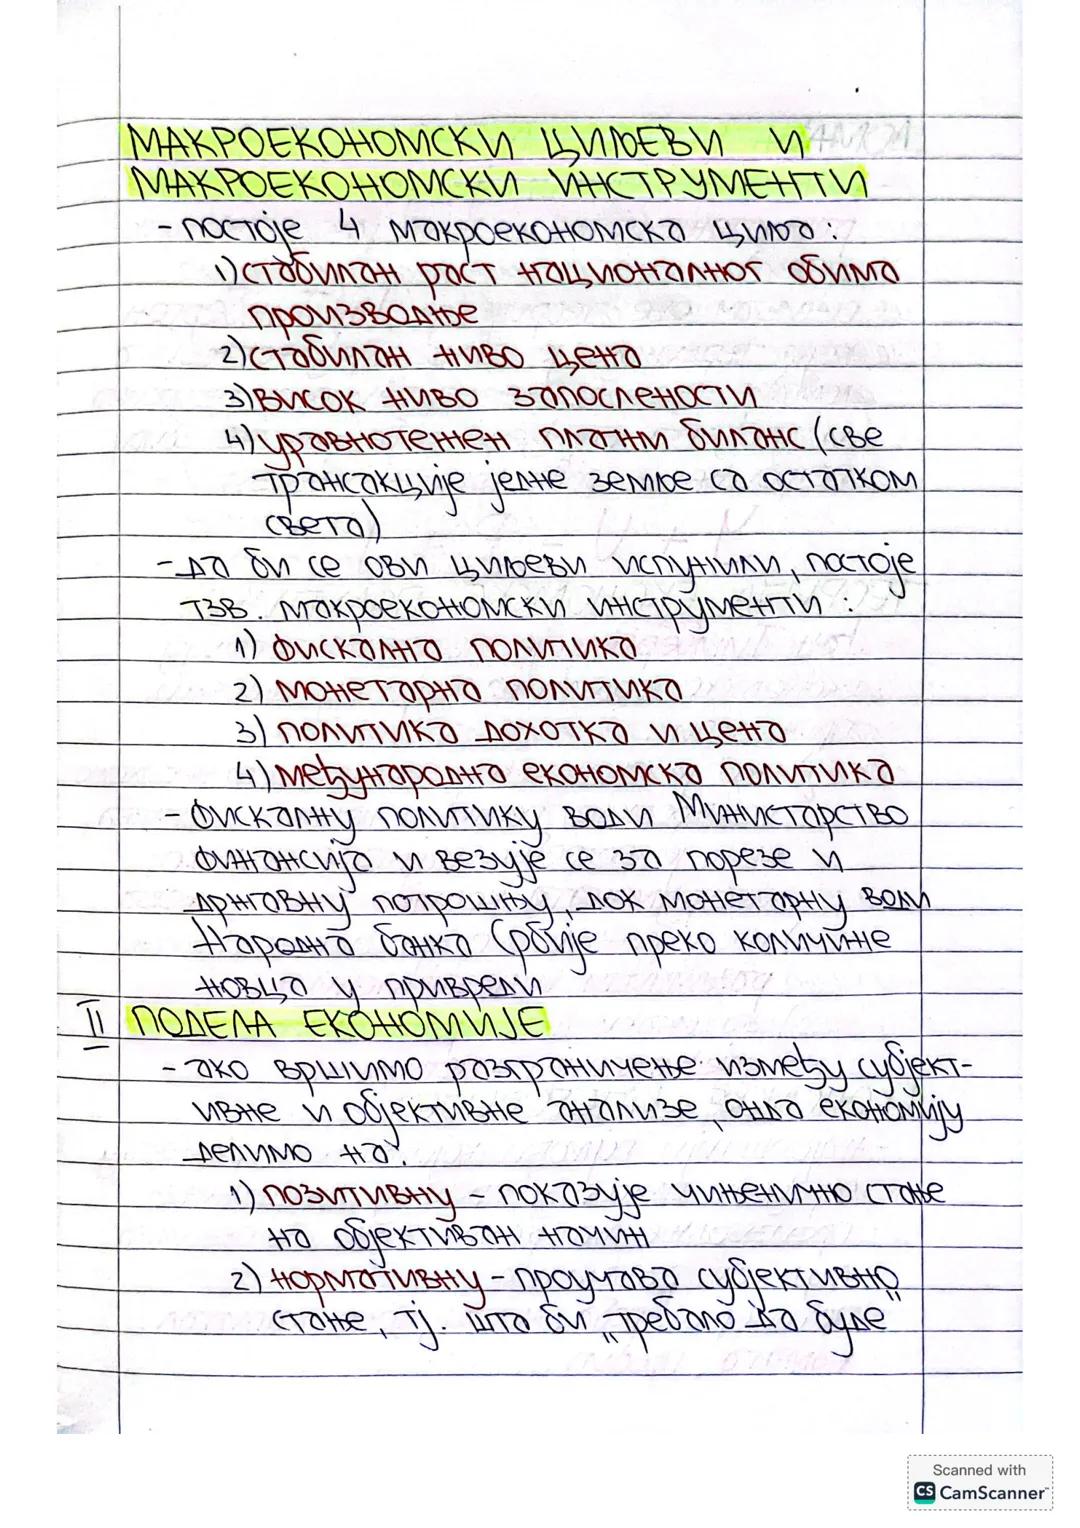 МАКРОЕКОНОМСКИ ЦИЉЕВИ И
МАКРОЕКОНОМСКИ ИНСТРУМЕНТИ
- постоје 4 макроекономска циља:
1) стабилан раст националног обима
производње
2) стабилан ниво цена
3) висок ниво запослености
4) уравнотежен платни биланс (све
трансакције једне земље са остатком
света)
- да би се ови циљеви испунили, постоје
тзв. макроекономски инструменти:
1) фискална политика
2) монетарна политика
3) политика дохотка и цена
4) међународна економска политика
- фискалну политику води Министарство
финансија и везује се за порезе и
државну потрошњу, док монетарну води
Народна банка Србије преко количине
новца у привреди
II ПОДЕЛА ЕКОНОМИЈЕ
- ако вршимо разграничење између субјект-
ивне и објективне анализе, онда економију
делимо на:
1) позитивну - показује чињенично стање
на објективан начин
2) нормативну - проучава субјективно
стање, тј. шта би „требало да буде"
Scanned with
CS CamScanner